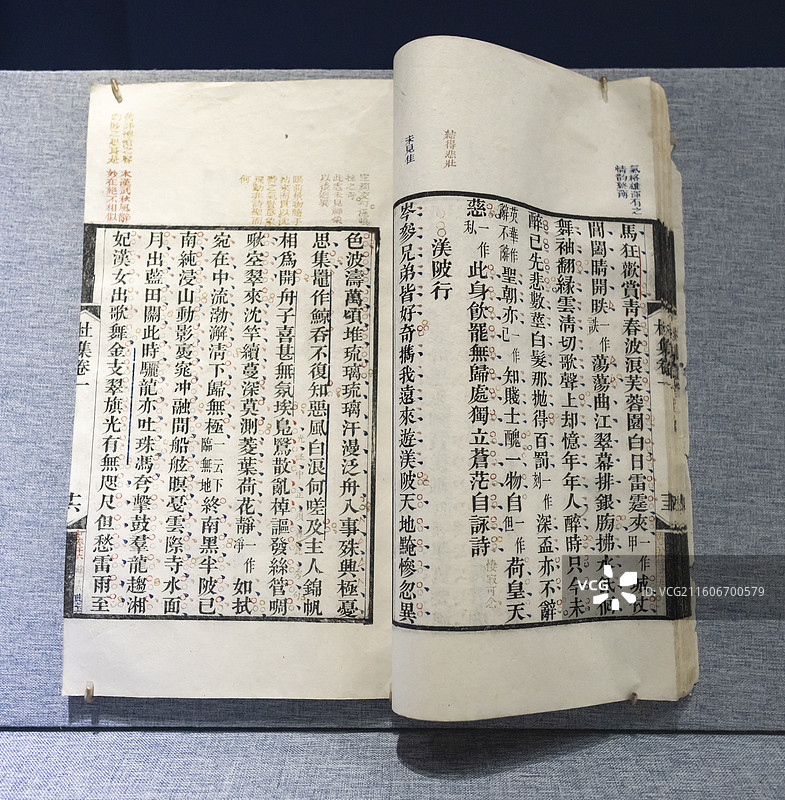 氣格雄渾有之
情韵終南
馬狂歡賞青春波浪芙蓉園白日雷霆夾甲一作
閶闔晴開昳一作詄蕩蕩曲江翠幕排銀牓拂水
舞袖翻緣雲清切歌聲上却憶年年人醉時只今未
醉已先悲數莖白髮那拋得百罰一作刻深盃亦不辭
英華作辭不辭聖朝亦一作已知賤士醜一物自一作但荷皇天
慈一作私此身飲罷無歸處獨立蒼茫自詠詩
結得悲壯
渼陂行
未見佳
岑參兄弟皆好奇攜我遠來遊渼陂天地黤慘忽異
色波濤萬頃堆琉璃琉璃汗漫泛舟入事殊興極憂
思集鼉作鯨吞不復知惡風白浪何嗟及主人錦帆
相爲開舟子喜甚無氛埃鳧鷖散亂棹謳發絲管啁
啾空翠來沈竿續蔓深莫測菱葉荷花靜一作淨如拭
宛在中流渤澥清下歸無極一云下臨無地終南黑半陂已
南純浸山動影裊窕沖融間船舷暝戛雲際寺水面
月出藍田關此時驪龍亦吐珠馮夷擊鼓羣龍趨湘
妃漢女出歌舞金支翠旗光有無咫尺但愁雷雨至
本漢武秋風辭
妙在絕不相似
杜集卷一
VCG
VCG211606700579